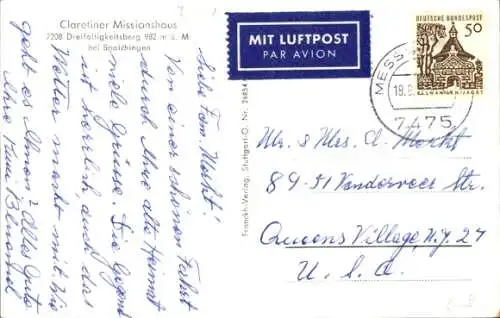 Claretiner Missionshaus
7208 Dreifaltigkeitsberg 982 m ü. M
bei Spaichingen
MIT LUFTPOST
PAR AVION
DEUTSCHE BUNDESPOST
50
ELLWANGEN/JAGST
MESS
19.8
7475
Franckh-Verlag, Stuttgart-O. Nr. 26854
Liebe Fam. Macht!
Von einer schönen Fahrt
durch Ihre alte Heimat
viele Grüsse. Die Gegend
ist herrlich, auch das
Wetter macht mit. Wie
geht es Ihnen? Alles Gute
Ihre
Mr & Mrs. A. Macht
89-51 Vanderveer Str.
Queens Village, N.Y. 27
U. S. A.